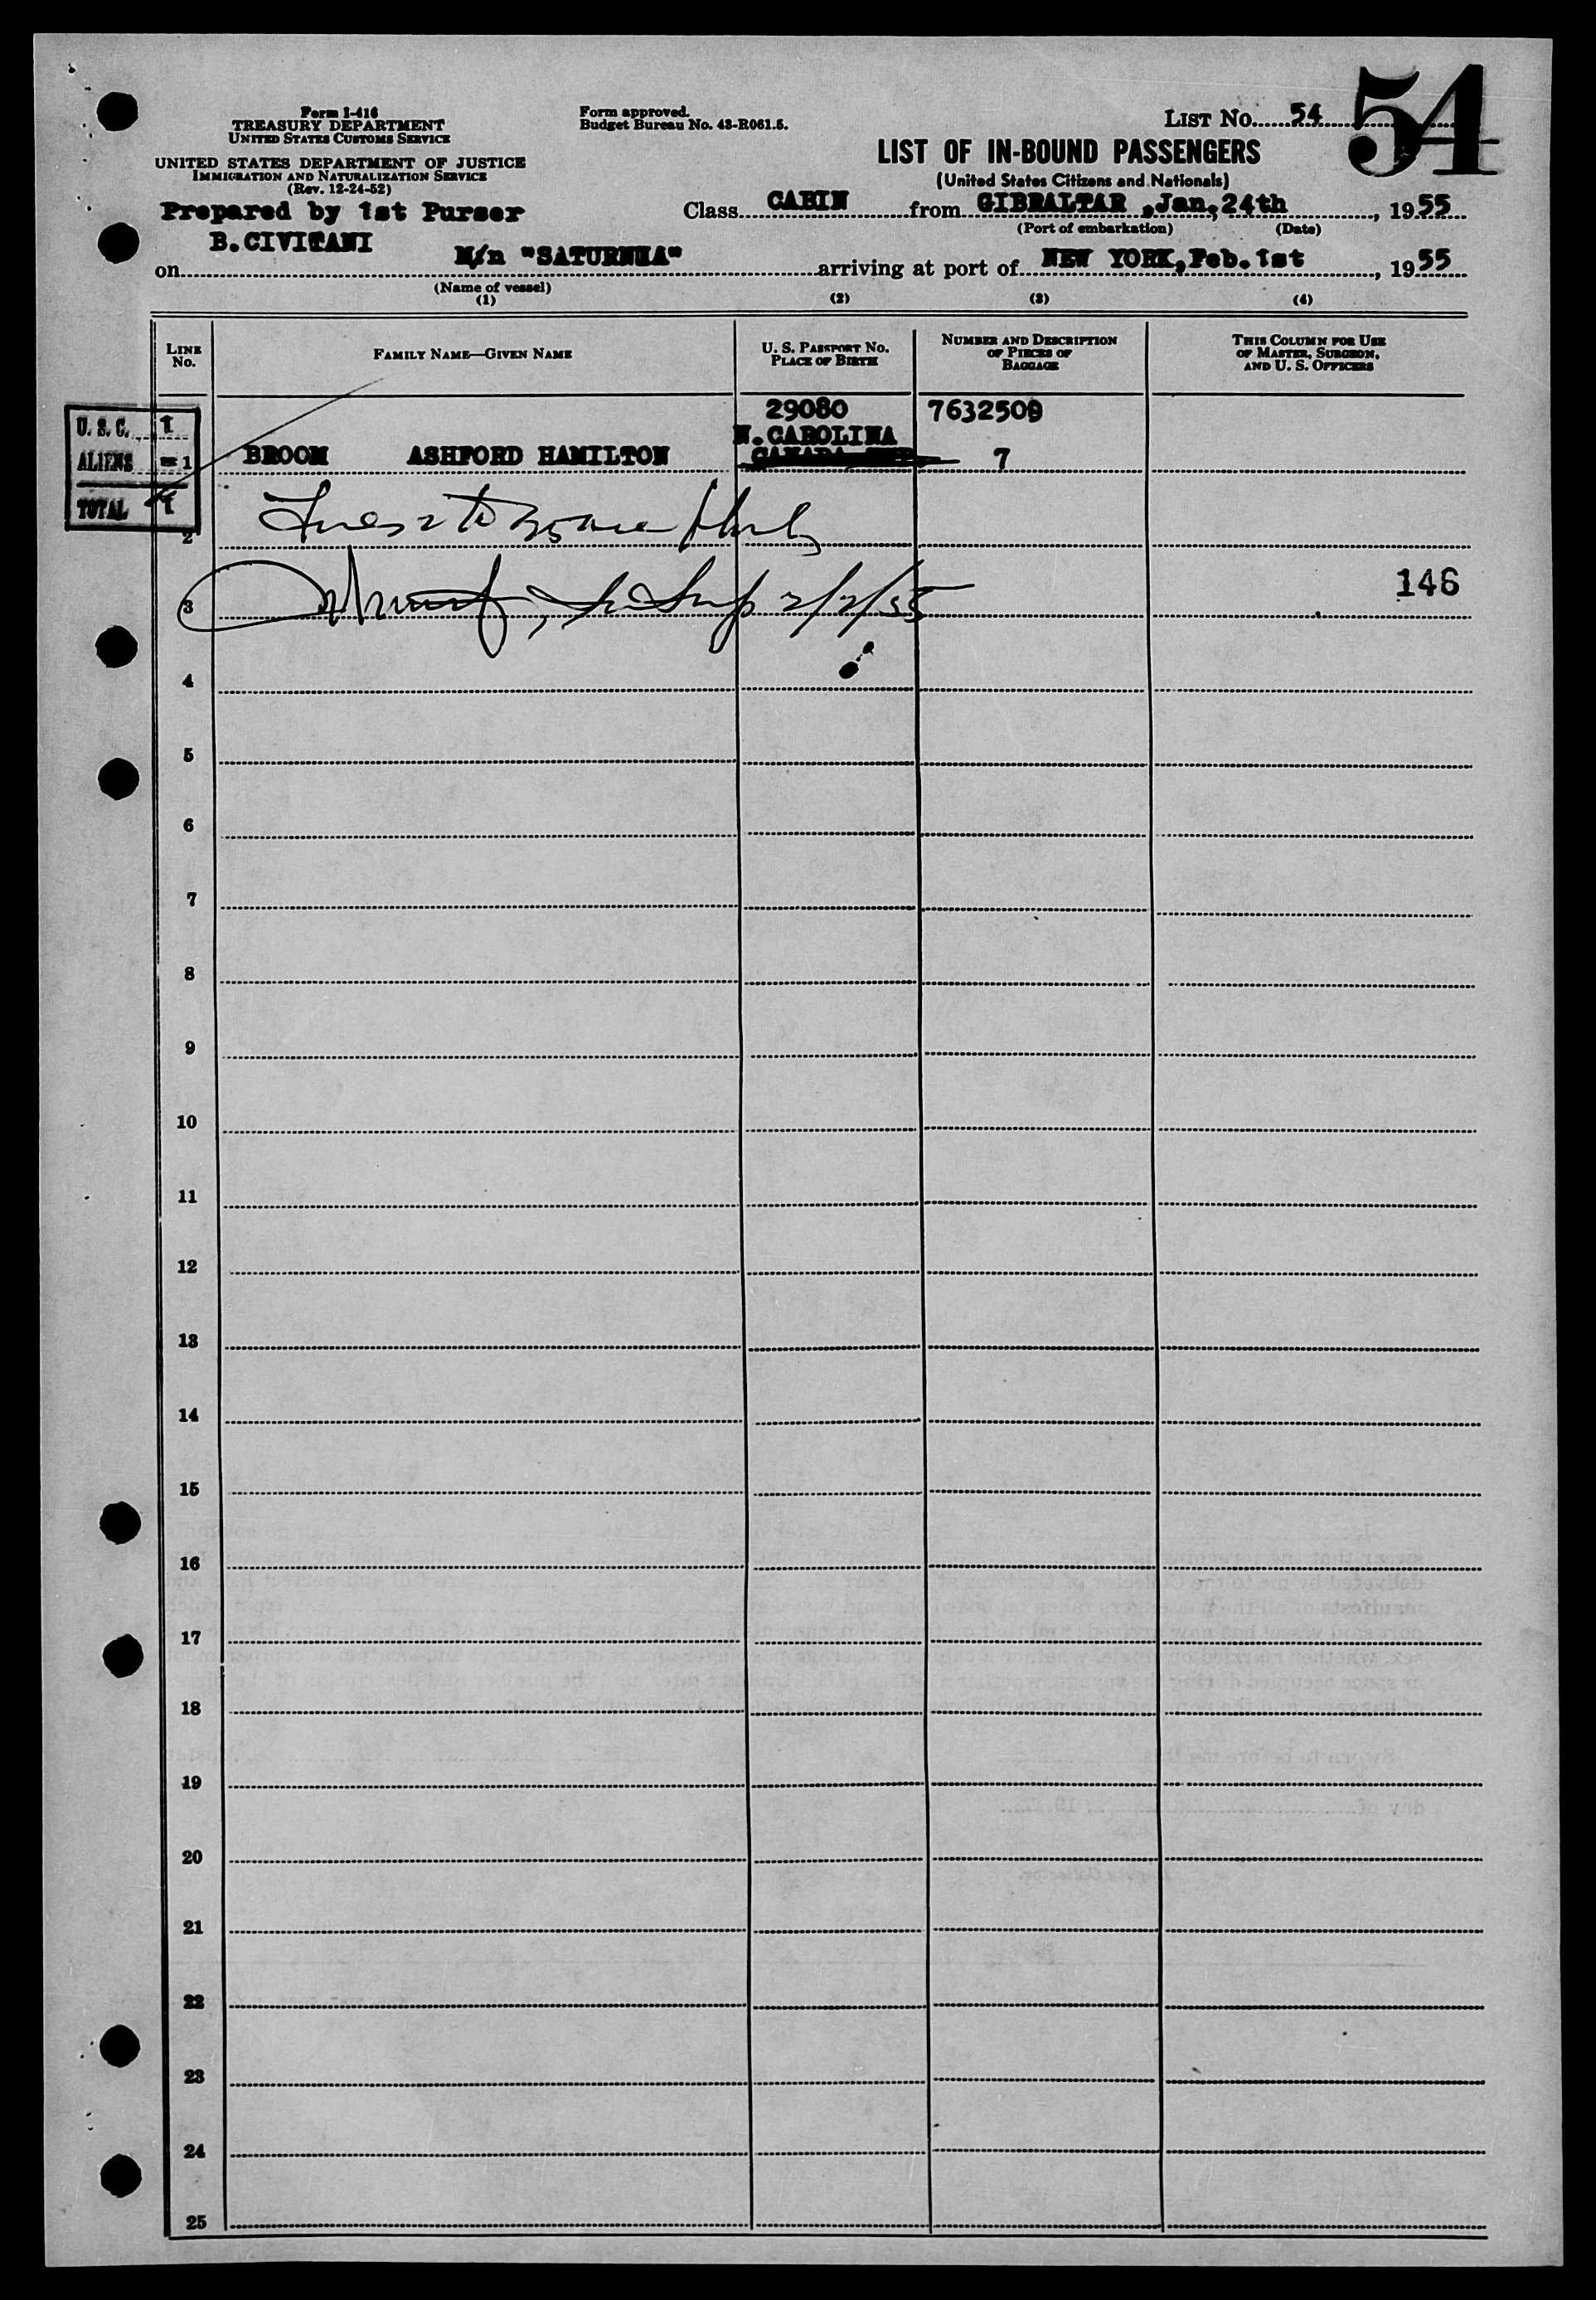 Form I-416
TREASURY DEPARTMENT
UNITED STATES CUSTOMS SERVICE
UNITED STATES DEPARTMENT OF JUSTICE
IMMIGRATION AND NATURALIZATION SERVICE
(Rev. 12-24-52)
Form approved.
Budget Bureau No. 43-R061.5.
LIST NO. 54
54
LIST OF IN-BOUND PASSENGERS
(United States Citizens and Nationals)
Prepared by 1st Purser
B.CIVITANI
Class CABIN from GIBRALTAR, Jan, 24th, 1955
(Port of embarkation) (Date)
on M/n "SATURNIA" arriving at port of NEW YORK, Feb. 1st, 1955
(Name of vessel)
(1) (2) (3) (4)
LINE NO.
FAMILY NAME—GIVEN NAME
U. S. PASSPORT NO.
PLACE OF BIRTH
NUMBER AND DESCRIPTION
OF PIECES OF
BAGGAGE
THIS COLUMN FOR USE
OF MASTER, SURGEON,
AND U. S. OFFICERS
U. S. C. 1
ALIENS -
TOTAL 1
29080 7632509
N.CAROLINA
1 BROOM ASHFORD HAMILTON 7
2
3 2/2/55 146
4
5
6
7
8
9
10
11
12
13
14
15
16
17
18
19
20
21
22
23
24
25